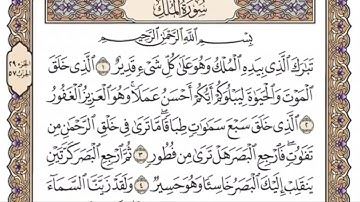 سُورَةُ المُلْكِ
بِسْمِ اللَّهِ الرَّحْمَٰنِ الرَّحِيمِ
تَبَٰرَكَ ٱلَّذِى بِيَدِهِ ٱلْمُلْكُ وَهُوَ عَلَىٰ كُلِّ شَىْءٍ قَدِيرٌ ١ ٱلَّذِى خَلَقَ
ٱلْمَوْتَ وَٱلْحَيَوٰةَ لِيَبْلُوَكُمْ أَيُّكُمْ أَحْسَنُ عَمَلًا ۚ وَهُوَ ٱلْعَزِيزُ ٱلْغَفُورُ
٢ ٱلَّذِى خَلَقَ سَبْعَ سَمَٰوَٰتٍ طِبَاقًا ۖ مَّا تَرَىٰ فِى خَلْقِ ٱلرَّحْمَٰنِ مِن
تَفَٰوُتٍ ۖ فَٱرْجِعِ ٱلْبَصَرَ هَلْ تَرَىٰ مِن فُطُورٍ ٣ ثُمَّ ٱرْجِعِ ٱلْبَصَرَ كَرَّتَيْنِ
يَنقَلِبْ إِلَيْكَ ٱلْبَصَرُ خَاسِئًا وَهُوَ حَسِيرٌ ٤ وَلَقَدْ زَيَّنَّا ٱلسَّمَآءَ
الجزء ٢٩
الحزب ٥٧